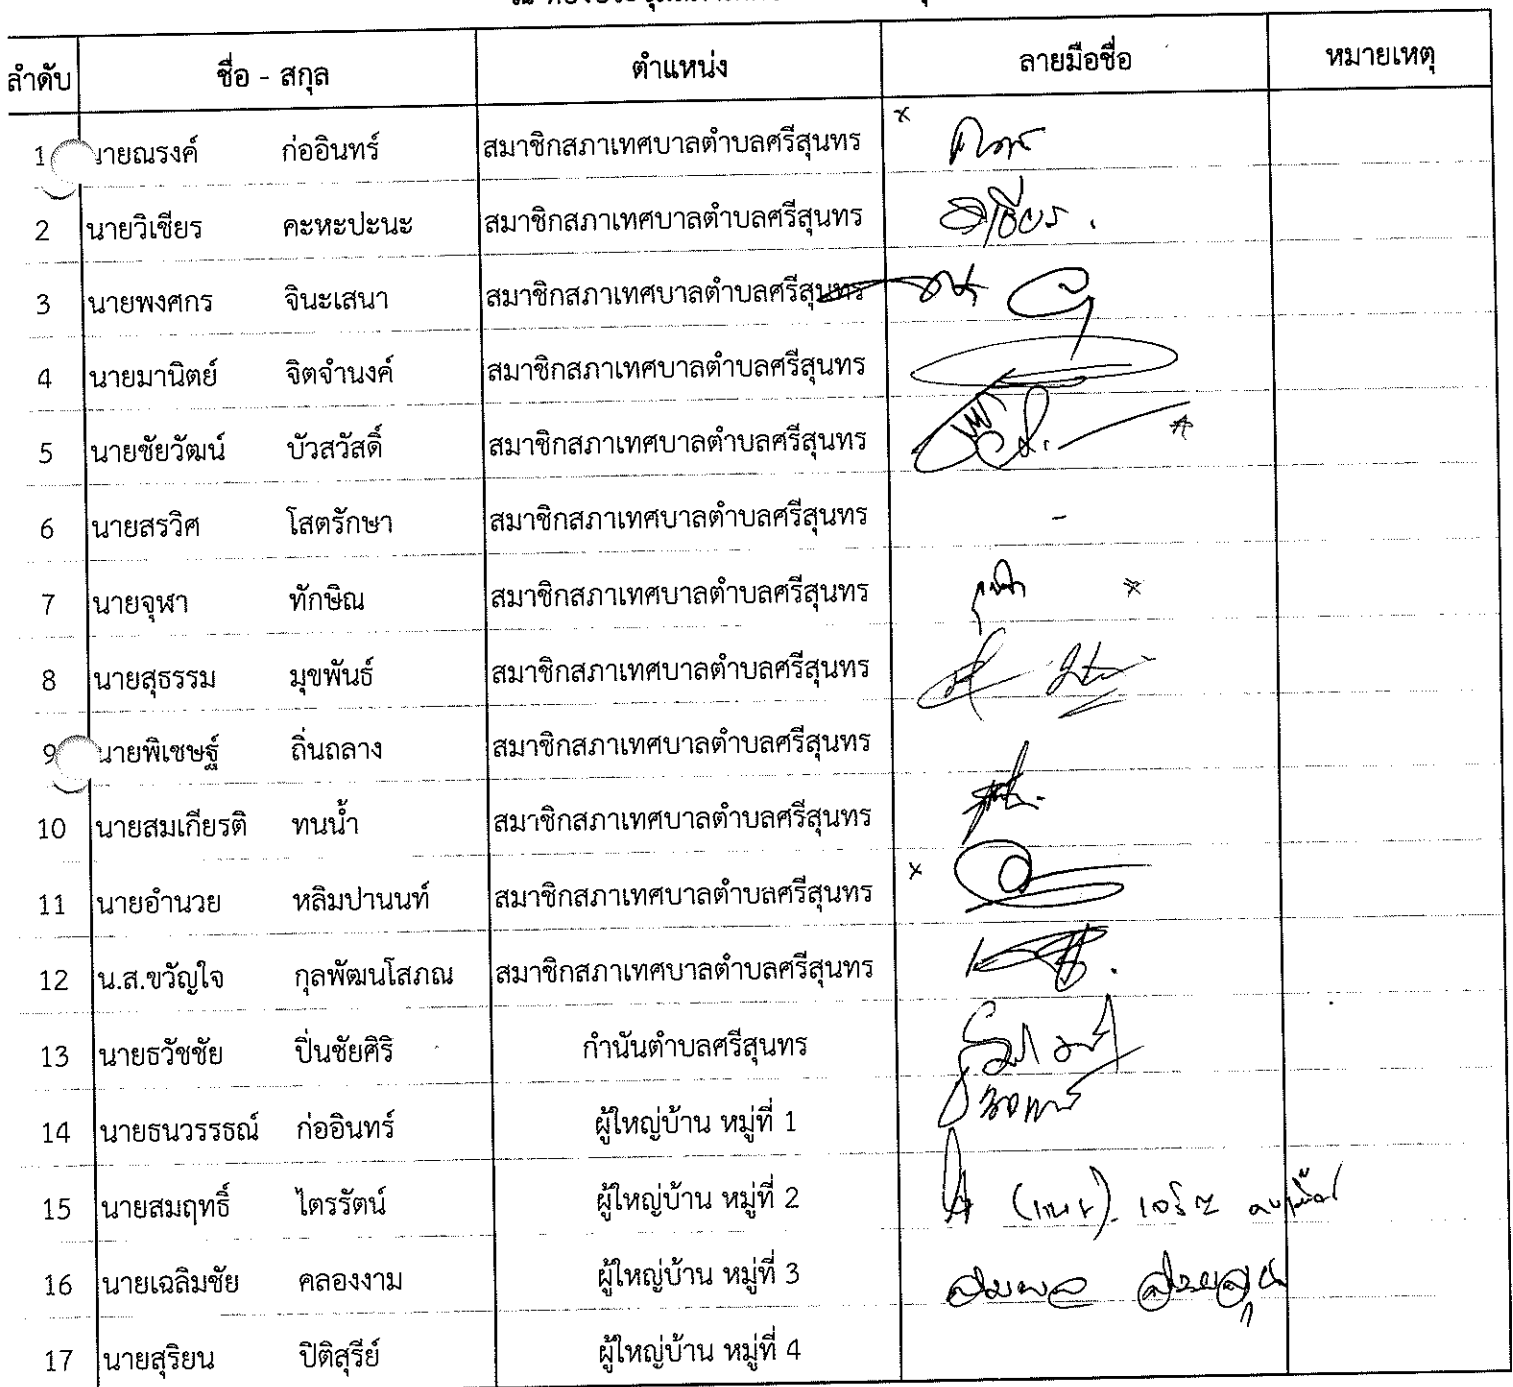 ลำดับ ชื่อ - สกุล ตำแหน่ง ลายมือชื่อ หมายเหตุ
1 นายณรงค์ ก่ออินทร์ สมาชิกสภาเทศบาลตำบลศรีสุนทร
2 นายวิเชียร คะหะปะนะ สมาชิกสภาเทศบาลตำบลศรีสุนทร วิเชียร.
3 นายพงศกร จินะเสนา สมาชิกสภาเทศบาลตำบลศรีสุนทร
4 นายมานิตย์ จิตจำนงค์ สมาชิกสภาเทศบาลตำบลศรีสุนทร
5 นายชัยวัฒน์ บัวสวัสดิ์ สมาชิกสภาเทศบาลตำบลศรีสุนทร
6 นายสรวิศ โสตรักษา สมาชิกสภาเทศบาลตำบลศรีสุนทร -
7 นายจุฬา ทักษิณ สมาชิกสภาเทศบาลตำบลศรีสุนทร
8 นายสุธรรม มุขพันธ์ สมาชิกสภาเทศบาลตำบลศรีสุนทร
9 นายพิเชษฐ์ ถิ่นถลาง สมาชิกสภาเทศบาลตำบลศรีสุนทร
10 นายสมเกียรติ ทนน้ำ สมาชิกสภาเทศบาลตำบลศรีสุนทร
11 นายอำนวย หลิมปานนท์ สมาชิกสภาเทศบาลตำบลศรีสุนทร
12 น.ส.ขวัญใจ กุลพัฒนโสภณ สมาชิกสภาเทศบาลตำบลศรีสุนทร
13 นายธวัชชัย ปิ่นชัยศิริ กำนันตำบลศรีสุนทร
14 นายธนวรรธณ์ ก่ออินทร์ ผู้ใหญ่บ้าน หมู่ที่ 1
15 นายสมฤทธิ์ ไตรรัตน์ ผู้ใหญ่บ้าน หมู่ที่ 2 (แทน)
16 นายเฉลิมชัย คลองงาม ผู้ใหญ่บ้าน หมู่ที่ 3
17 นายสุริยน ปิติสุรีย์ ผู้ใหญ่บ้าน หมู่ที่ 4